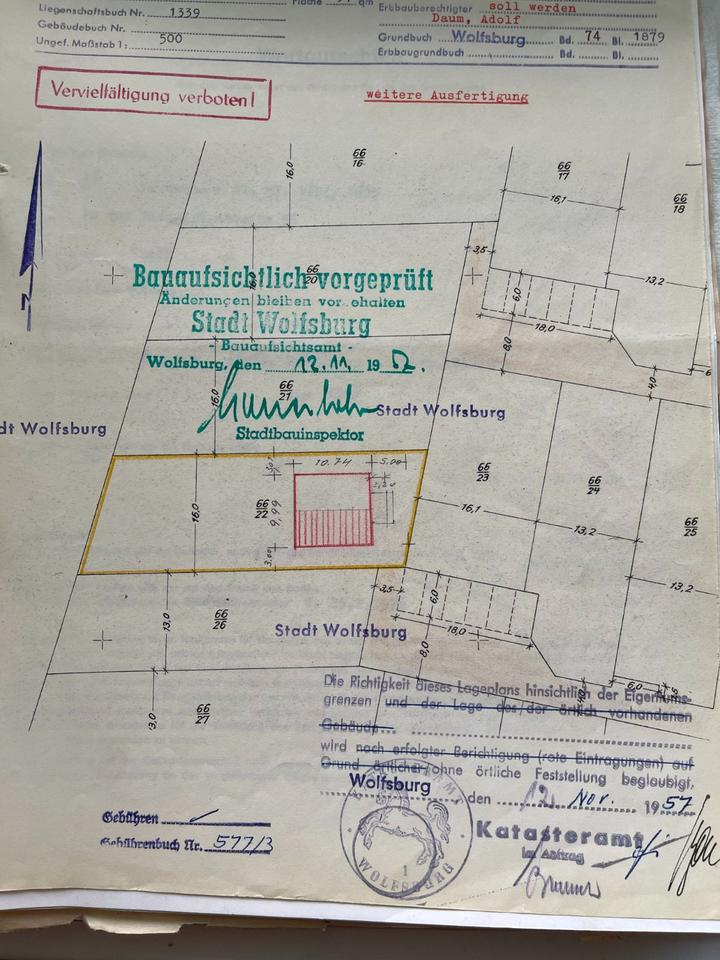 Liegenschaftsbuch Nr. 1339
Gebäudebuch Nr.
Ungef. Maßstab 1: 500
Fläche qm
Erbbauberechtigter soll werden
Daum, Adolf
Grundbuch Wolfsburg Bd. 74 Bl. 1879
Erbbaugrundbuch Bd. Bl.
Vervielfältigung verboten!
weitere Ausfertigung
16,0
66
16
66
17
16,1
66
18
3,5
13,2
6,0
18,0
8,0
4,0
6
N
66
20
16,0
Bauaufsichtlich vorgeprüft
Änderungen bleiben vorbehalten
Stadt Wolfsburg
- Bauaufsichtsamt -
Wolfsburg, den 12.11. 1957.
66
21
16,0
Stadt Wolfsburg
Stadtbauinspektor
dt Wolfsburg
10.74
5.00
3,00
66
22
9,99
16,0
3,00
66
23
16,1
66
24
13,2
66
25
13,2
13,0
66
26
3,5
6,0
18,0
8,0
Stadt Wolfsburg
4,0
6,0
3,0
66
27
Die Richtigkeit dieses Lageplans hinsichtlich der Eigentums-
grenzen und der Lage des/der örtlich vorhandenen
Gebäude
wird nach erfolgter Berichtigung (rote Eintragungen) auf
Grund örtlicher/ohne örtliche Feststellung beglaubigt.
Wolfsburg den 12. Nov. 1957
Katasteramt
Im Auftrag
KATASTERAMT
WOLFSBURG
1
Gebühren
Gebührenbuch Nr. 577/3